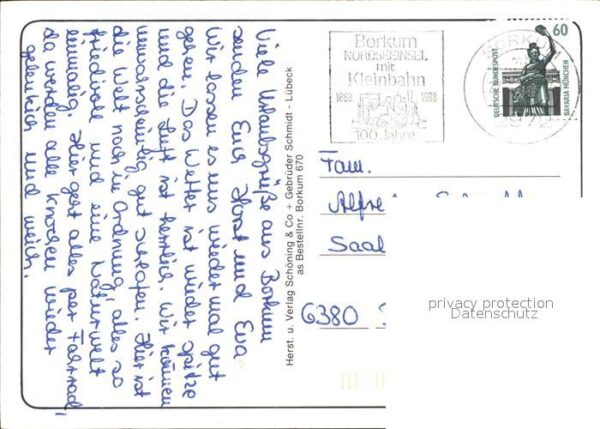 Viele Urlaubsgrüße aus Borkum
senden Euch Horst und Eva
Wir lassen es uns wieder mal gut
gehen. Das Wetter ist wieder spitze
und die Luft ist herrlich. Wir können
unwahrscheinlig gut schlafen. Hier ist
die Welt noch in Ordnung, alles so
friedvoll und eine Naturwelt
einmalig. Hier geht alles per Fahrrad,
da werden alle Knochen wieder
gelenkich und weich.
Herst. u. Verlag Schöning & Co + Gebrüder Schmidt - Lübeck
as Bestellnr. Borkum 670
Borkum
NORDSEEINSEL
mit
Kleinbahn
1888 1988
100 Jahre
BORKUM
60
DEUTSCHE BUNDESPOST
BAVARIA MÜNCHEN
Fam.
Alfre
Saal
6380
privacy protection
Datenschutz